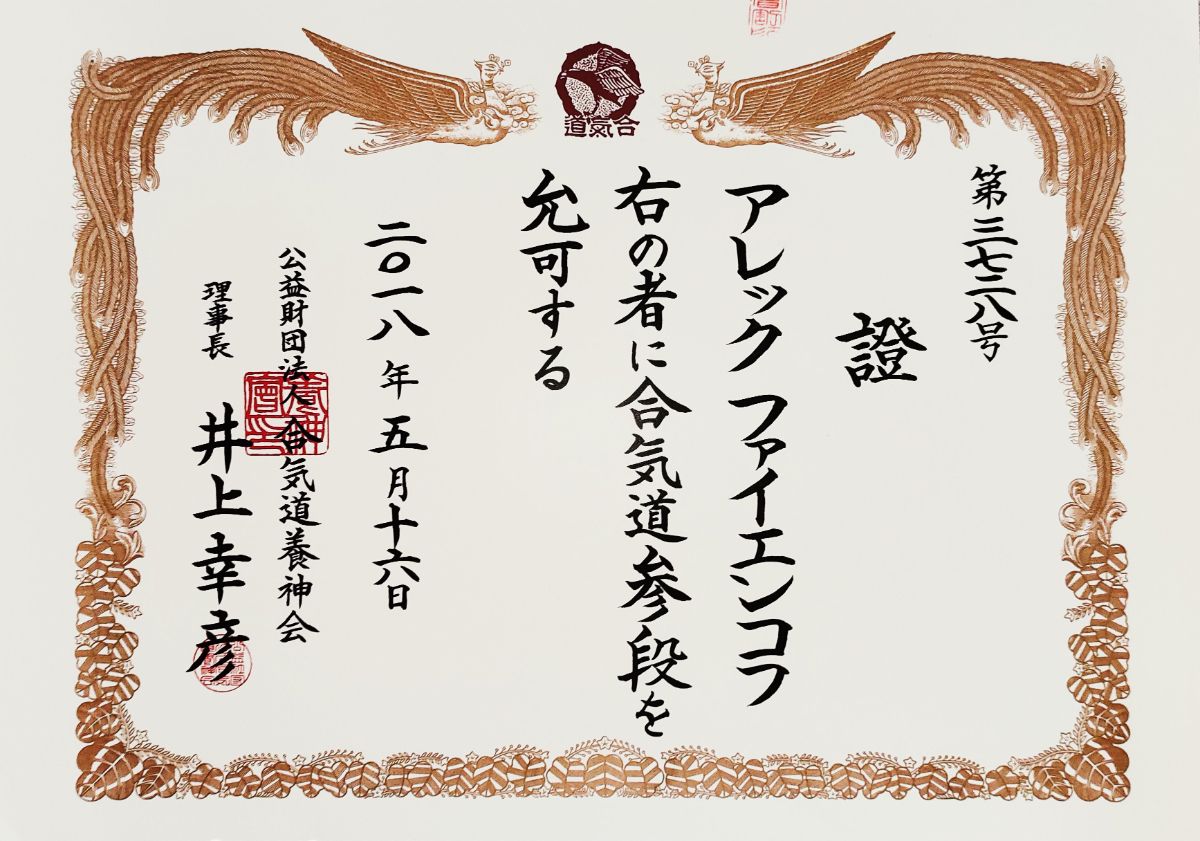 合氣道
第三七二八号
證
アレック ファイエンコフ
右の者に合気道参段を
允可する
二〇一八年五月十六日
公益財団法人合気道養神会
理事長 井上幸彦